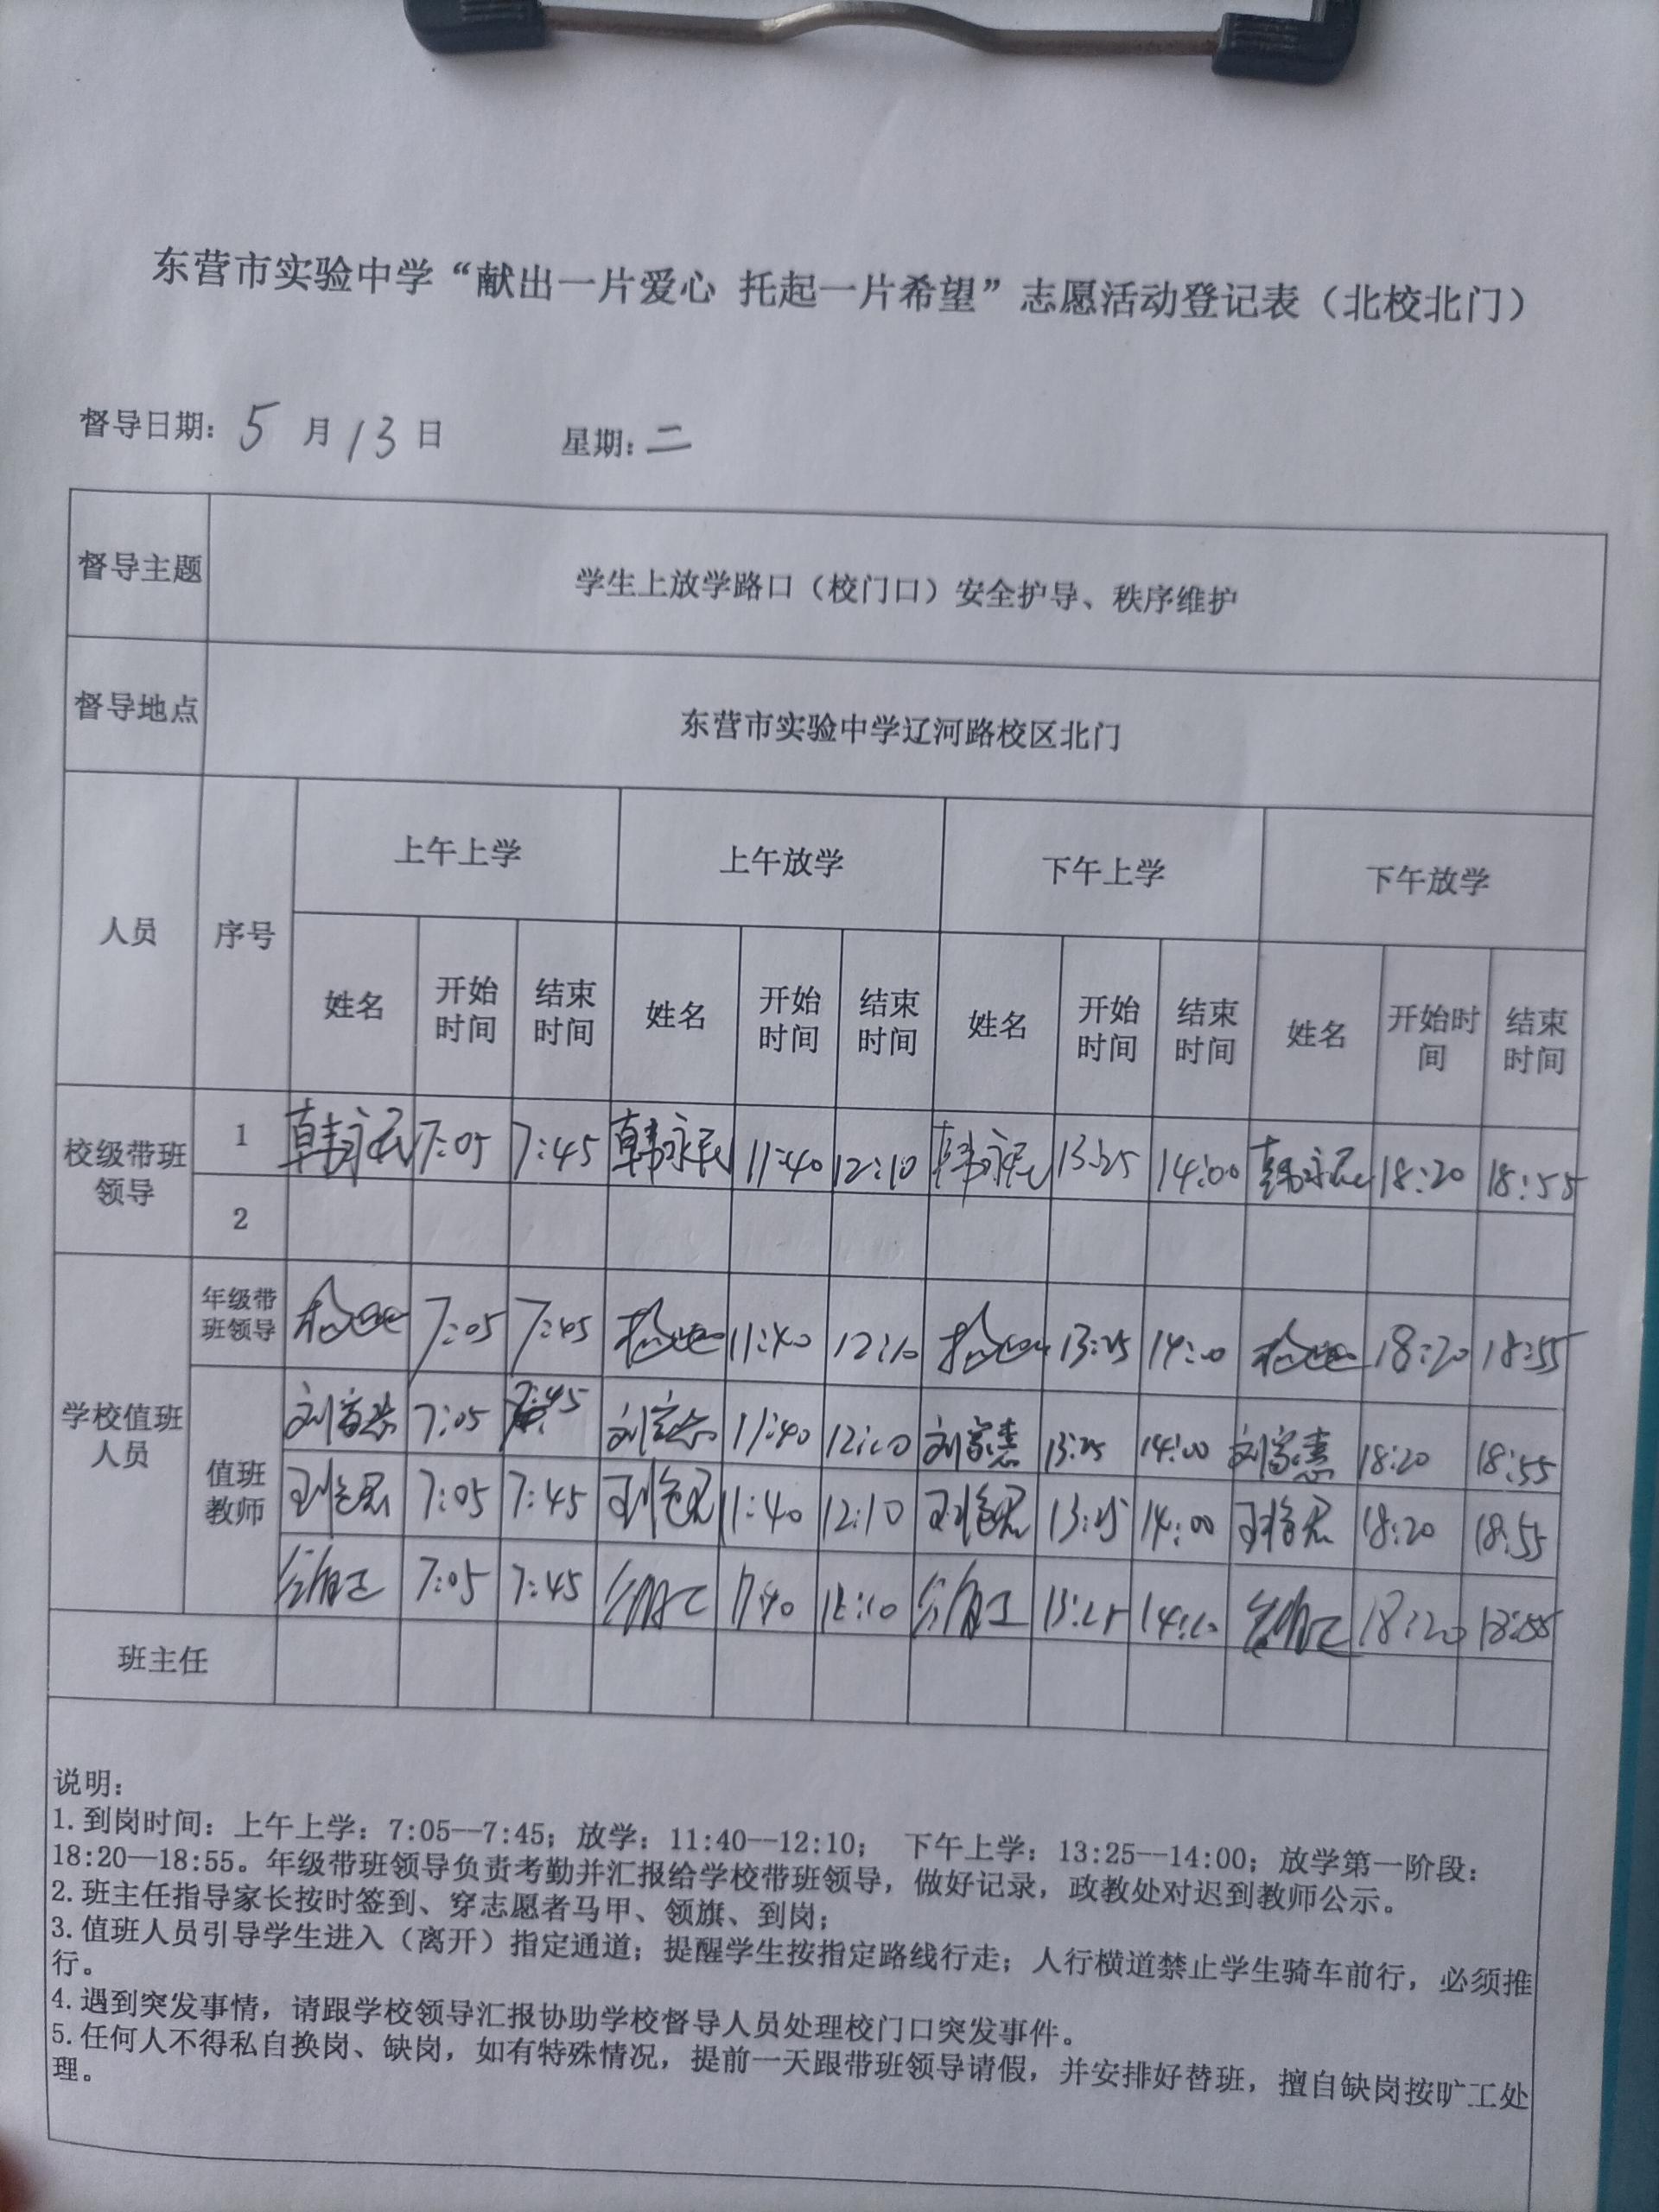 东营市实验中学“献出一片爱心 托起一片希望”志愿活动登记表（北校北门）
督导日期: 5 月 13 日 星期: 二
督导主题 学生上放学路口（校门口）安全护导、秩序维护
督导地点 东营市实验中学辽河路校区北门
人员 序号 上午上学 上午放学 下午上学 下午放学
姓名 开始时间 结束时间 姓名 开始时间 结束时间 姓名 开始时间 结束时间 姓名 开始时间 结束时间
校级带班领导 1 韩永民 7:05 7:45 韩永民 11:40 12:10 韩永民 13:25 14:00 韩永民 18:20 18:55
2
学校值班人员 年级带班领导 7:05 7:45 11:40 12:10 13:25 14:00 18:20 18:55
值班教师 刘富慧 7:05 7:45 刘富慧 11:40 12:10 刘富慧 13:25 14:00 刘富慧 18:20 18:55
7:05 7:45 11:40 12:10 13:25 14:00 18:20 18:55
7:05 7:45 18:20 18:55
班主任
说明:
1.到岗时间：上午上学：7:05—7:45；放学：11:40—12:10； 下午上学：13:25—14:00；放学第一阶段：
18:20—18:55。年级带班领导负责考勤并汇报给学校带班领导，做好记录，政教处对迟到教师公示。
2.班主任指导家长按时签到、穿志愿者马甲、领旗、到岗；
3.值班人员引导学生进入（离开）指定通道；提醒学生按指定路线行走；人行横道禁止学生骑车前行，必须推
行。
4.遇到突发事情，请跟学校领导汇报协助学校督导人员处理校门口突发事件。
5.任何人不得私自换岗、缺岗，如有特殊情况，提前一天跟带班领导请假，并安排好替班，擅自缺岗按旷工处
理。